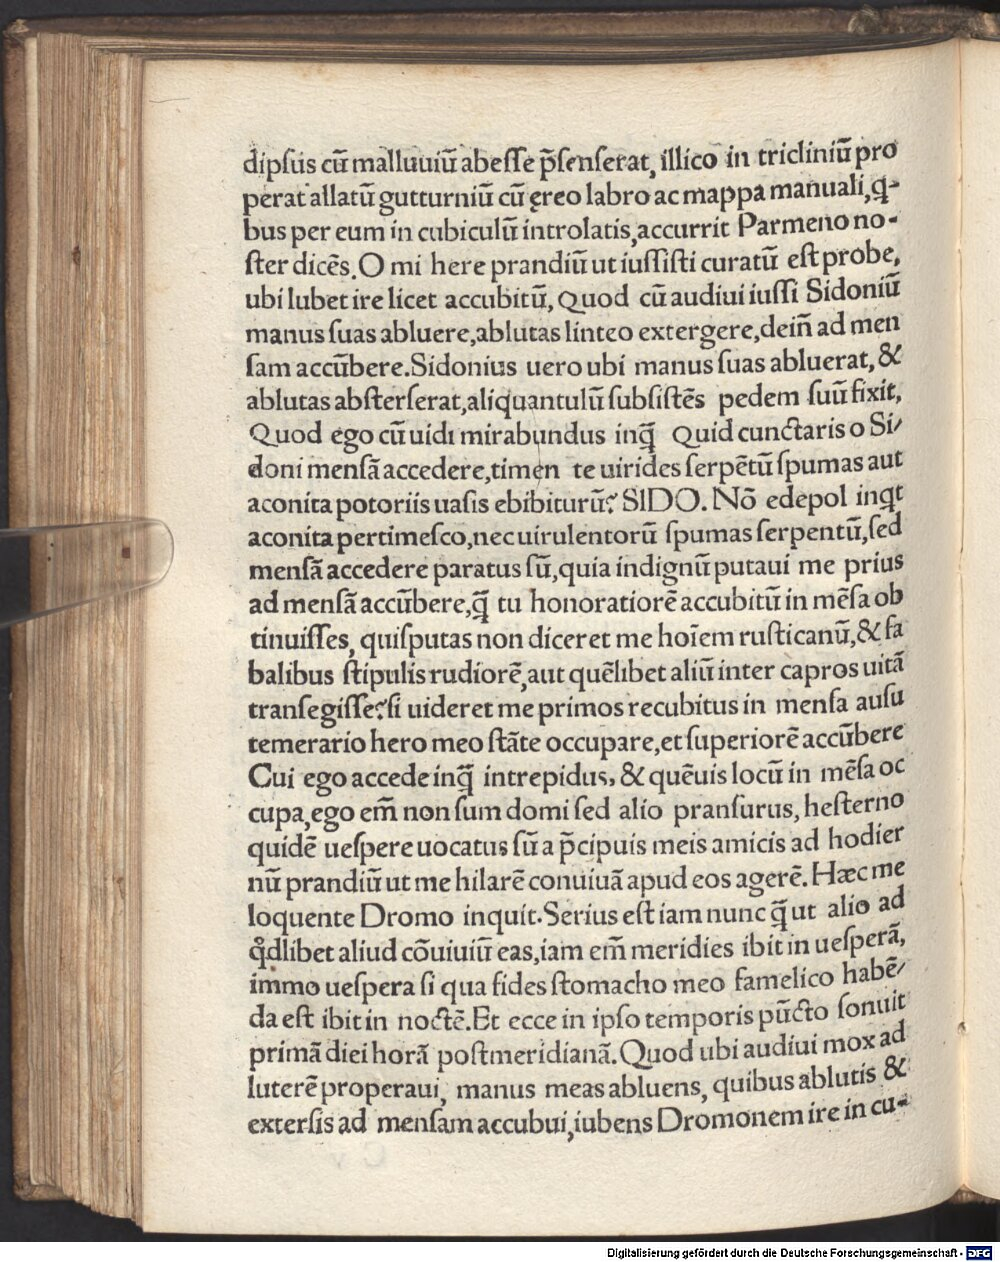 dipſus cū malluuiū abeſſe p̄ſenſerat, illico in tricliniū pro
perat allatū gutturniū cū ęreo labro ac mappa manuali, q-
bus per eum in cubiculū introlatis, accurrit Parmeno no-
ſter dicēs. O mi here prandiū ut iuſſiſti curatū eſt probe,
ubi lubet ire licet accubitū, Quod cū audiui iuſſi Sidoniū
manus ſuas abluere, ablutas linteo extergere, dein̄ ad men
ſam accūbere. Sidonius uero ubi manus ſuas abluerat, &
ablutas abſterſerat, aliquantulū ſubſiſtēs pedem ſuū fixit,
Quod ego cū uidi mirabundus inq̄ Quid cunctaris o Si/
doni menſā accedere, timen te uirides ſerpētū ſpumas aut
aconita potoriis uaſis ebibiturū? SIDO. Nō edepol inqt
aconita pertimeſco, nec uirulentorū ſpumas ſerpentū, ſed
menſā accedere paratus ſū, quia indignū putaui me prius
ad menſā accūbere, q̄ tu honoratiorē accubitū in mēſa ob
tinuiſſes, quiſputas non diceret me hoīem ruſticanū, & fa
balibus ſtipulis rudiorē, aut quēlibet aliū inter capros uitā
tranſegiſſe? ſi uideret me primos recubitus in menſa auſu
temerario hero meo ſtāte occupare, et ſuperiorē accūbere
Cui ego accede inq̄ intrepidus, & quēuis locū in mēſa oc
cupa, ego em̄ non ſum domi ſed alio pranſurus, heſterno
quidē ueſpere uocatus ſū a p̄cipuis meis amicis ad hodier
nū prandiū ut me hilarē conuiuā apud eos agerē. Hæc me
loquente Dromo inquit. Serius eſt iam nunc q̄ ut alio ad
qͦdlibet aliud cōuiuiū eas, iam em̄ meridies ibit in ueſperā,
immo ueſpera ſi qua fides ſtomacho meo famelico habē/
da eſt ibit in noctē. Et ecce in ipſo temporis pūcto ſonuit
primā diei horā poſtmeridianā. Quod ubi audiui mox ad
luterē properaui, manus meas abluens, quibus ablutis &
exterſis ad menſam accubui, iubens Dromonem ire in cu-
Digitalisierung gefördert durch die Deutsche Forschungsgemeinschaft - DFG